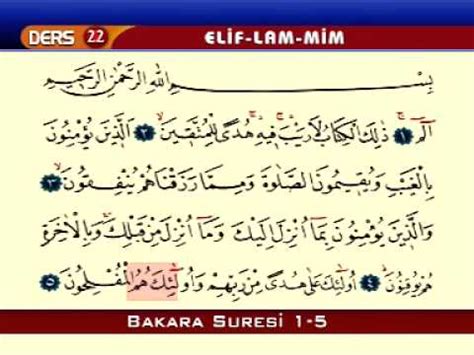 DERS 22 ELİF-LAM-MİM
بِسْــــمِ اللهِ الرَّحْمٰنِ الرَّحِيمِ
الٓمٓ ﴿١﴾ ذٰلِكَ الْكِتَابُ لَا رَيْبَ فِيهِ هُدًى لِلْمُتَّقِينَ ﴿٢﴾ اَلَّذِينَ يُؤْمِنُونَ
بِالْغَيْبِ وَيُقِيمُونَ الصَّلٰوةَ وَمِمَّا رَزَقْنَاهُمْ يُنْفِقُونَ ﴿٣﴾
وَالَّذِينَ يُؤْمِنُونَ بِمَٓا اُنْزِلَ اِلَيْكَ وَمَٓا اُنْزِلَ مِنْ قَبْلِكَ وَبِالْاٰخِرَةِ
هُمْ يُوقِنُونَ ﴿٤﴾ اُولٰٓئِكَ عَلٰى هُدًى مِنْ رَبِّهِمْ وَاُولٰٓئِكَ هُمُ الْمُفْلِحُونَ ﴿٥﴾
BAKARA SURESİ 1-5